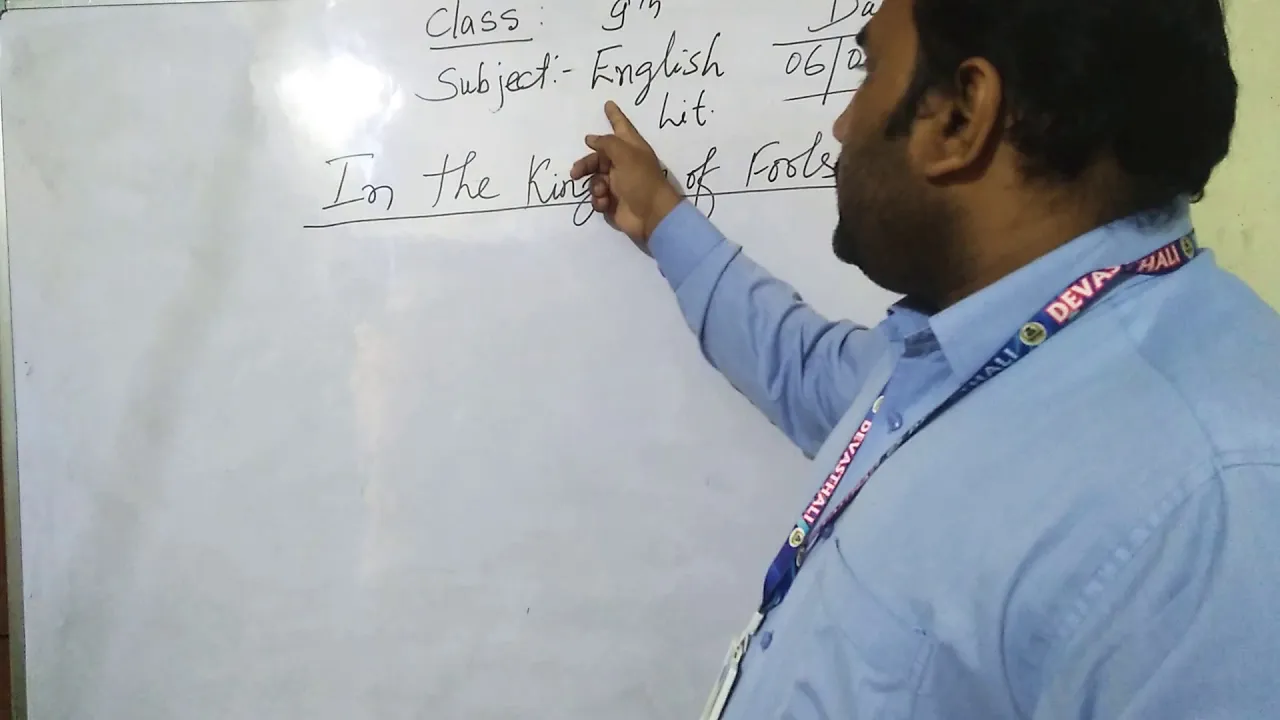 Class : 9th
Subject:- English
06/0
Lit.
In the King of Fools
DEVAS HALI
HALI
DEVASTHALI